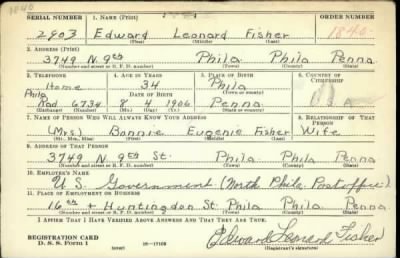 1840
SERIAL NUMBER 1. NAME (Print) ORDER NUMBER
2903 Edward Leonard Fisher 1840
(First) (Middle) (Last)
2. ADDRESS (Print)
3749 N. 9th Phila Phila Penna
(Number and street or R. F. D. number) (Town) (County) (State)
3. TELEPHONE 4. AGE IN YEARS 5. PLACE OF BIRTH 6. COUNTRY OF CITIZENSHIP
Home 34 Phila
Phila DATE OF BIRTH (Town or county) U S A
Rad 6734 8 4 1906 Penna
(Exchange) (Number) (Mo.) (Day) (Yr.) (State or country)
7. NAME OF PERSON WHO WILL ALWAYS KNOW YOUR ADDRESS 8. RELATIONSHIP OF THAT PERSON
(Mrs) Bonnie Eugenie Fisher Wife
(Mr., Mrs., Miss) (First) (Middle) (Last)
9. ADDRESS OF THAT PERSON
3749 N. 9th St. Phila Phila Penna
(Number and street or R. F. D. number) (Town) (County) (State)
10. EMPLOYER'S NAME
U. S. Government (North Phila Postoffice)
11. PLACE OF EMPLOYMENT OR BUSINESS
16th + Huntingdon St Phila Phila Penna
(Number and street or R. F. D. number) (Town) (County) (State)
I AFFIRM THAT I HAVE VERIFIED ABOVE ANSWERS AND THAT THEY ARE TRUE.
REGISTRATION CARD
D. S. S. Form 1 16—17105 Edward Leonard Fisher
(Registrant's signature)